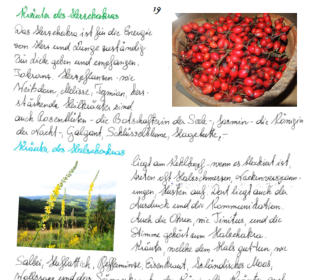 Kräuter des Herzchakras
19
Das Herzchakra ist für die Energie
von Herz und Lunge zuständig.
Für dich geben und empfangen.
Herzpflanzen wie
Weißdorn, Melisse, Jasmin, herz-
stärkende Heilkräuter sind
auch Rosenblüten - die Botschafterin der Seele -, Jasmin - die Königin
der Nacht -, Galgant, Schlüsselblume, Hagebutte, -
Kräuter des Halschakras
liegt am Kehlkopf - wenn es blockiert ist,
treten oft Halsschmerzen,
ungen, Husten auf. Dort liegt auch der
Ausdruck und die Kommunikation.
Auch die Ohren, wie Tinitus, und die
Stimme gehört zum Halschakra.
Kräuter, welche dem Hals guttun, wie
Salbei, Huflattich, Pfefferminze, Eisenkraut, Isländisches Moos,